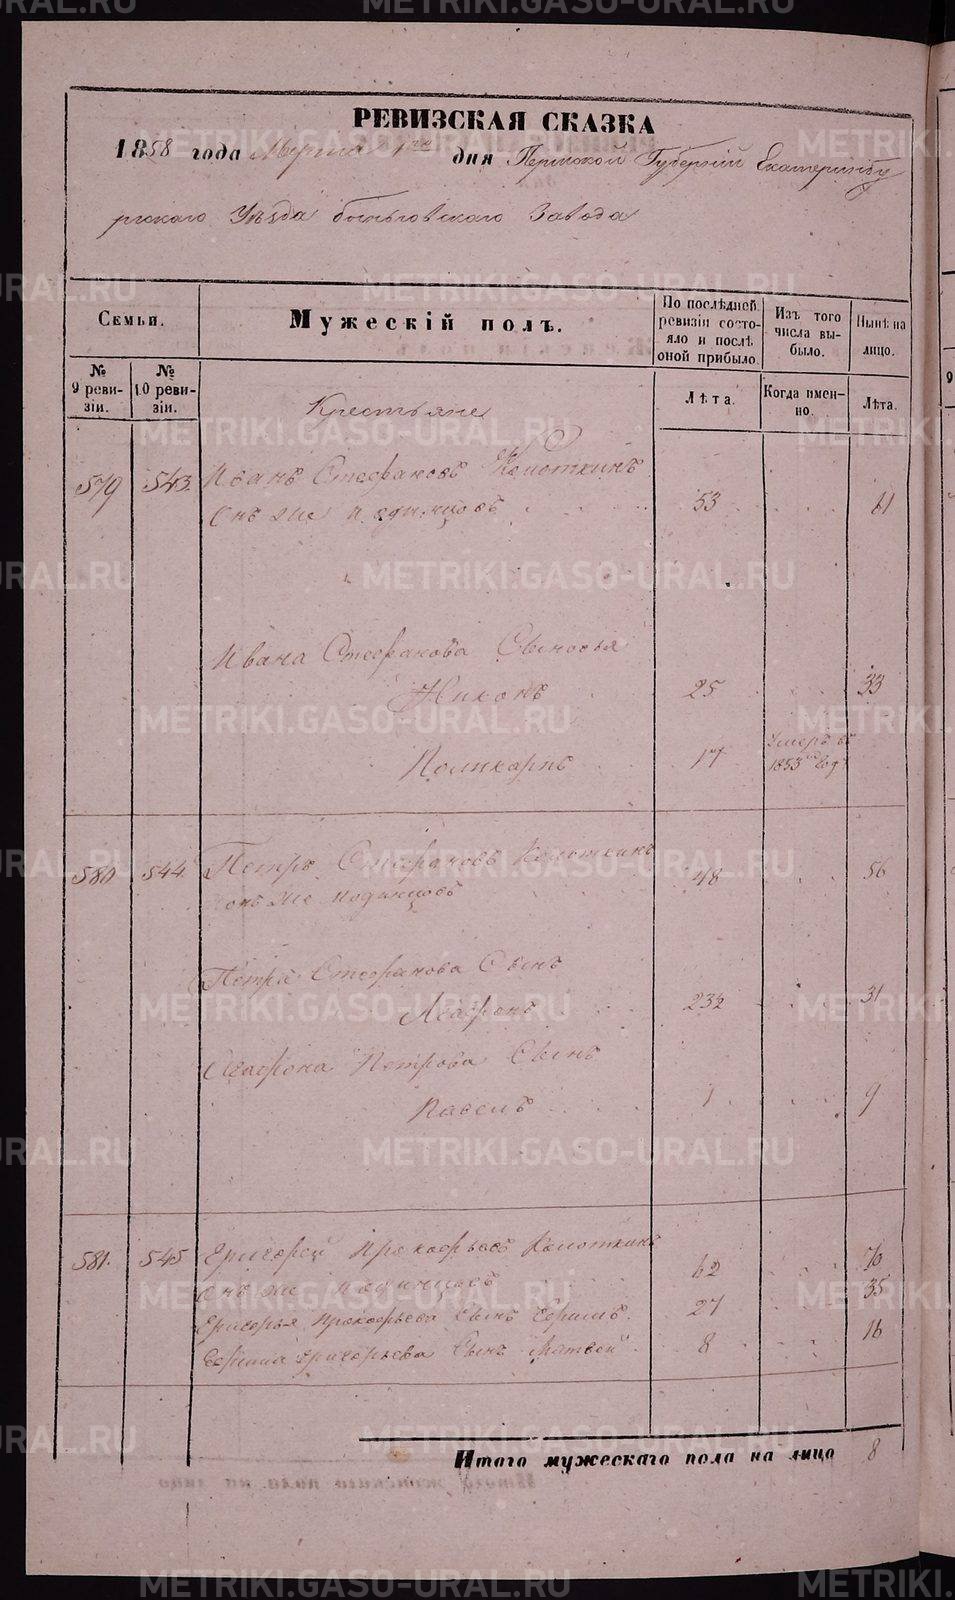 РЕВИЗСКАЯ СКАЗКА
1858 года Марта 1го дня Пермской Губернiи Екатеринбу
ргскаго Уѣзда Завода
Семьи.
Мужескiй полъ.
По послѣдней ревизiи состояло и послѣ оной прибыло.
Изъ того числа выбыло.
Нынѣ на лицо.
№ 9 ревизiи.
№ 10 ревизiи.
Лѣта.
Когда именно.
Лѣта.
Крестьяне
579 543. Иванъ Стефановъ Колоткинъ
Онъ же Юдинцовъ 53 61
Ивана Стефанова Сыновья
Никонъ 25 33
Поликарпъ 17 Умеръ въ 1853 Году
580 544 Петръ Стефановъ Колоткинъ 48 56
Онъ же Юдинцовъ
Петра Стефанова Сынъ
Агафонъ 23½ 31
Агафона Петрова Сынъ
Павелъ 1 9
581. 545 Григорей Прокофьевъ Колоткинъ
Онъ же Юдинцовъ 62 70
Григорья Прокофьева Сынъ Ефимъ. 27 35
Ефима Григорьева Сынъ Матвей 8 16
Итого мужескаго пола на лицо 8
METRIKI.GASO-URAL.RU